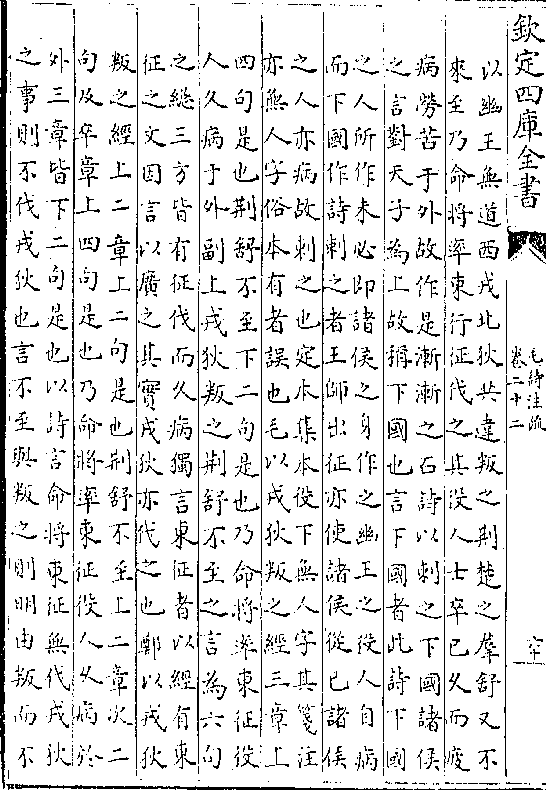 欽定四庫全書
毛詩注疏
卷二十二
六十一
以幽王無道西戎北狄共違叛之荆楚之羣舒又不
來至乃命將率東行征伐之其役人士卒已久而疲
病勞苦于外故作是漸漸之石詩以刺之下國諸侯
之言對天子為上故稱下國也言下國者此詩下國
之人所作未必即諸侯之身作之幽王之役人自病
而下國作詩刺之者王師出征亦使諸侯從已諸侯
之人亦病故刺之也定本集本役下無人字其箋注
亦無人字俗本有者誤也毛以戎狄叛之經三章上
四句是也荆舒不至下二句是也乃命將率東征役
人久病于外副上戎狄叛之荆舒不至之言為六句
之緫三方皆有征伐而久病獨言東征者以經有東
征之文因言以廣之其實戎狄亦伐之也鄭以戎狄
叛之經上二章上二句是也荆舒不至上二章次二
句及卒章上四句是也乃命將率東征役人久病於
外三章皆下二句是也以詩言命將東征無伐戎狄
之事則不伐戎狄也言不至與叛之則明由叛而不